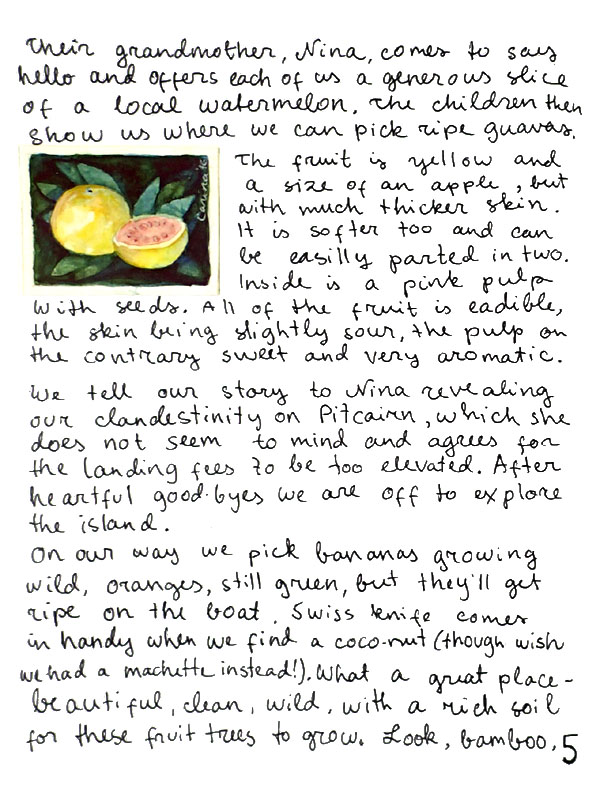 Their grandmother, Nina, comes to say
hello and offers each of us a generous slice
of a local watermelon. The children then
show us where we can pick ripe guavas.
The fruit is yellow and
a size of an apple, but
with much thicker skin.
It is softer too and can
be easilly parted in two.
Inside is a pink pulp
with seeds. All of the fruit is eadible,
the skin being slightly sour, the pulp on
the contrary sweet and very aromatic.
We tell our story to Nina revealing
our clandestinity on Pitcairn, which she
does not seem to mind and agrees for
the landing fees to be too elevated. After
heartful good-byes we are off to explore
the island.
On our way we pick bananas growing
wild, oranges, still green, but they'll get
ripe on the boat. Swiss knife comes
in handy when we find a coco-nut (though wish
we had a machette instead!). What a great place -
beautiful, clean, wild, with a rich soil
for these fruit trees to grow. Look, bamboo,
5